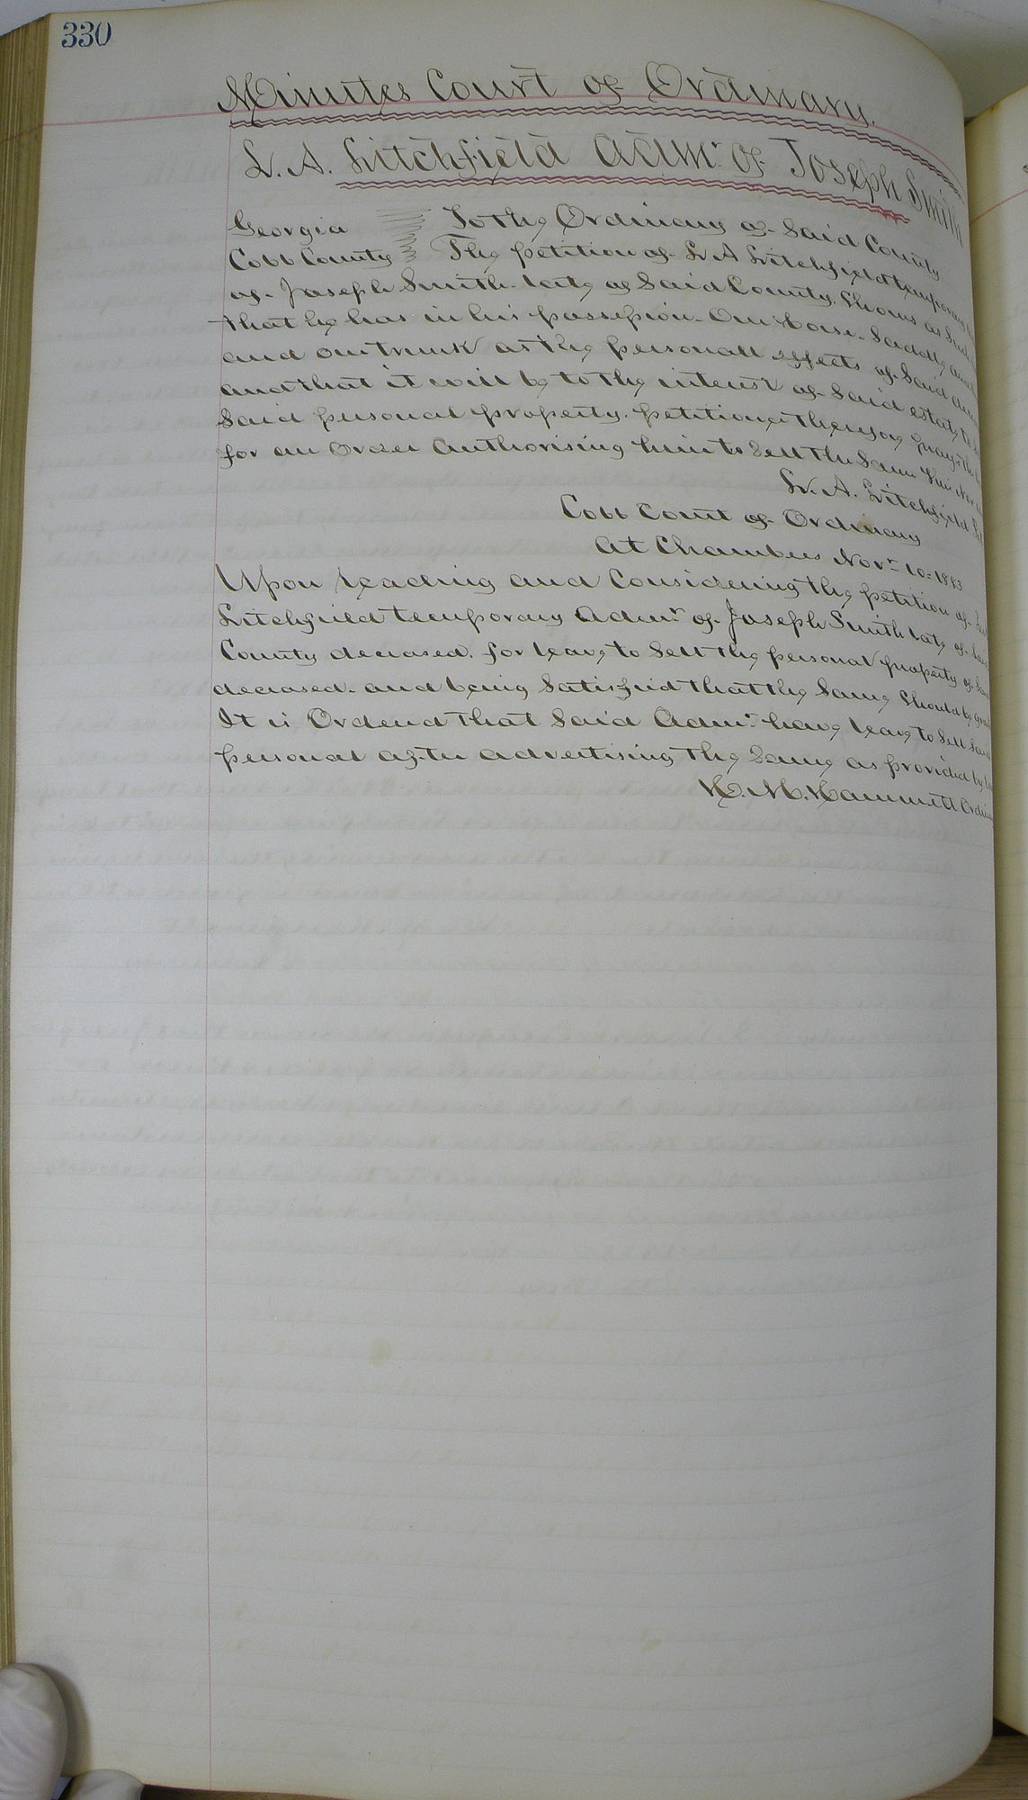 330
Minutes Court of Ordinary.
L. A. Litchfield Adm.r of Joseph Smith
Georgia To the Ordinary of Said County
Cobb County The petition of L A Litchfield temporary
of Joseph Smith late of Said County. Shows as Such
that he has in his possession One Horse. Saddle and
and one trunk as the personall effects of Said
and that it will be to the interest of Said estate to
Said personal property. petitioner therefor prays the
for an Order Authorising him to Sell the Same this Nov
L. A. Litchfield
Cobb Court of Ordinary
At Chambers Nov.r 10. 1883
Upon reading and Considering the petition of
Litchfield temporary Adm.r of Joseph Smith late of Said
County deceased. for leave to Sell the personal property of Said
deceased. and being Satisfied that the Same Should be
It is Ordered that Said Adm.r have leave to Sell Said
personal after advertising the Same as provided by
H. M. Hammett